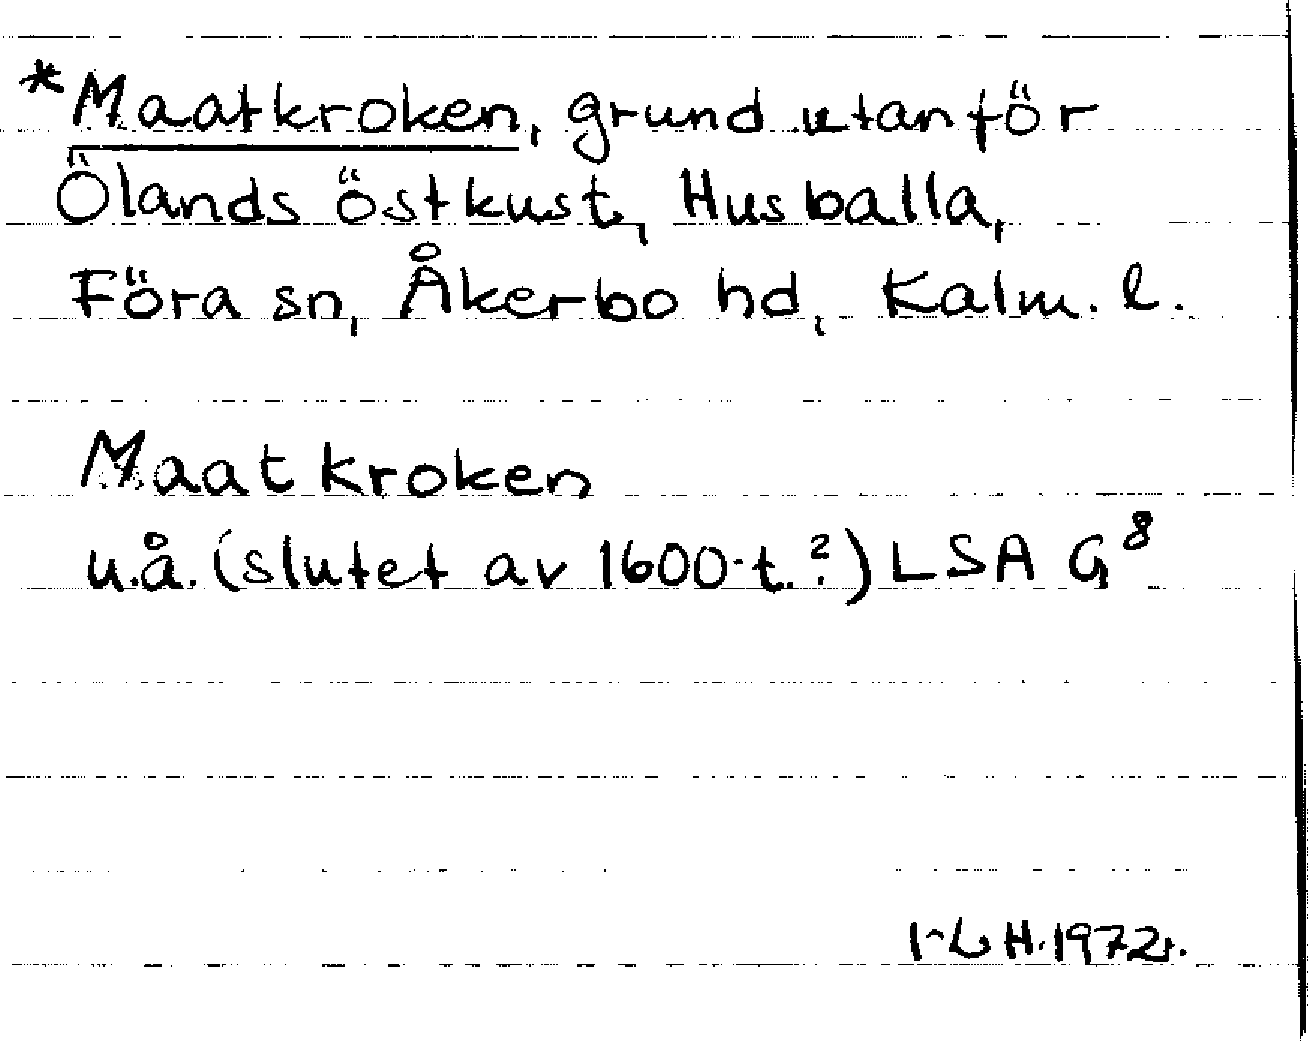 *Maatkroken, grund utanför
Ölands östkust, Husballa,
Föra sn, Åkerbo hd, Kalm. l.
Maatkroken
u.å. (slutet av 1600-t.?) LSA G⁸
H. 1972.